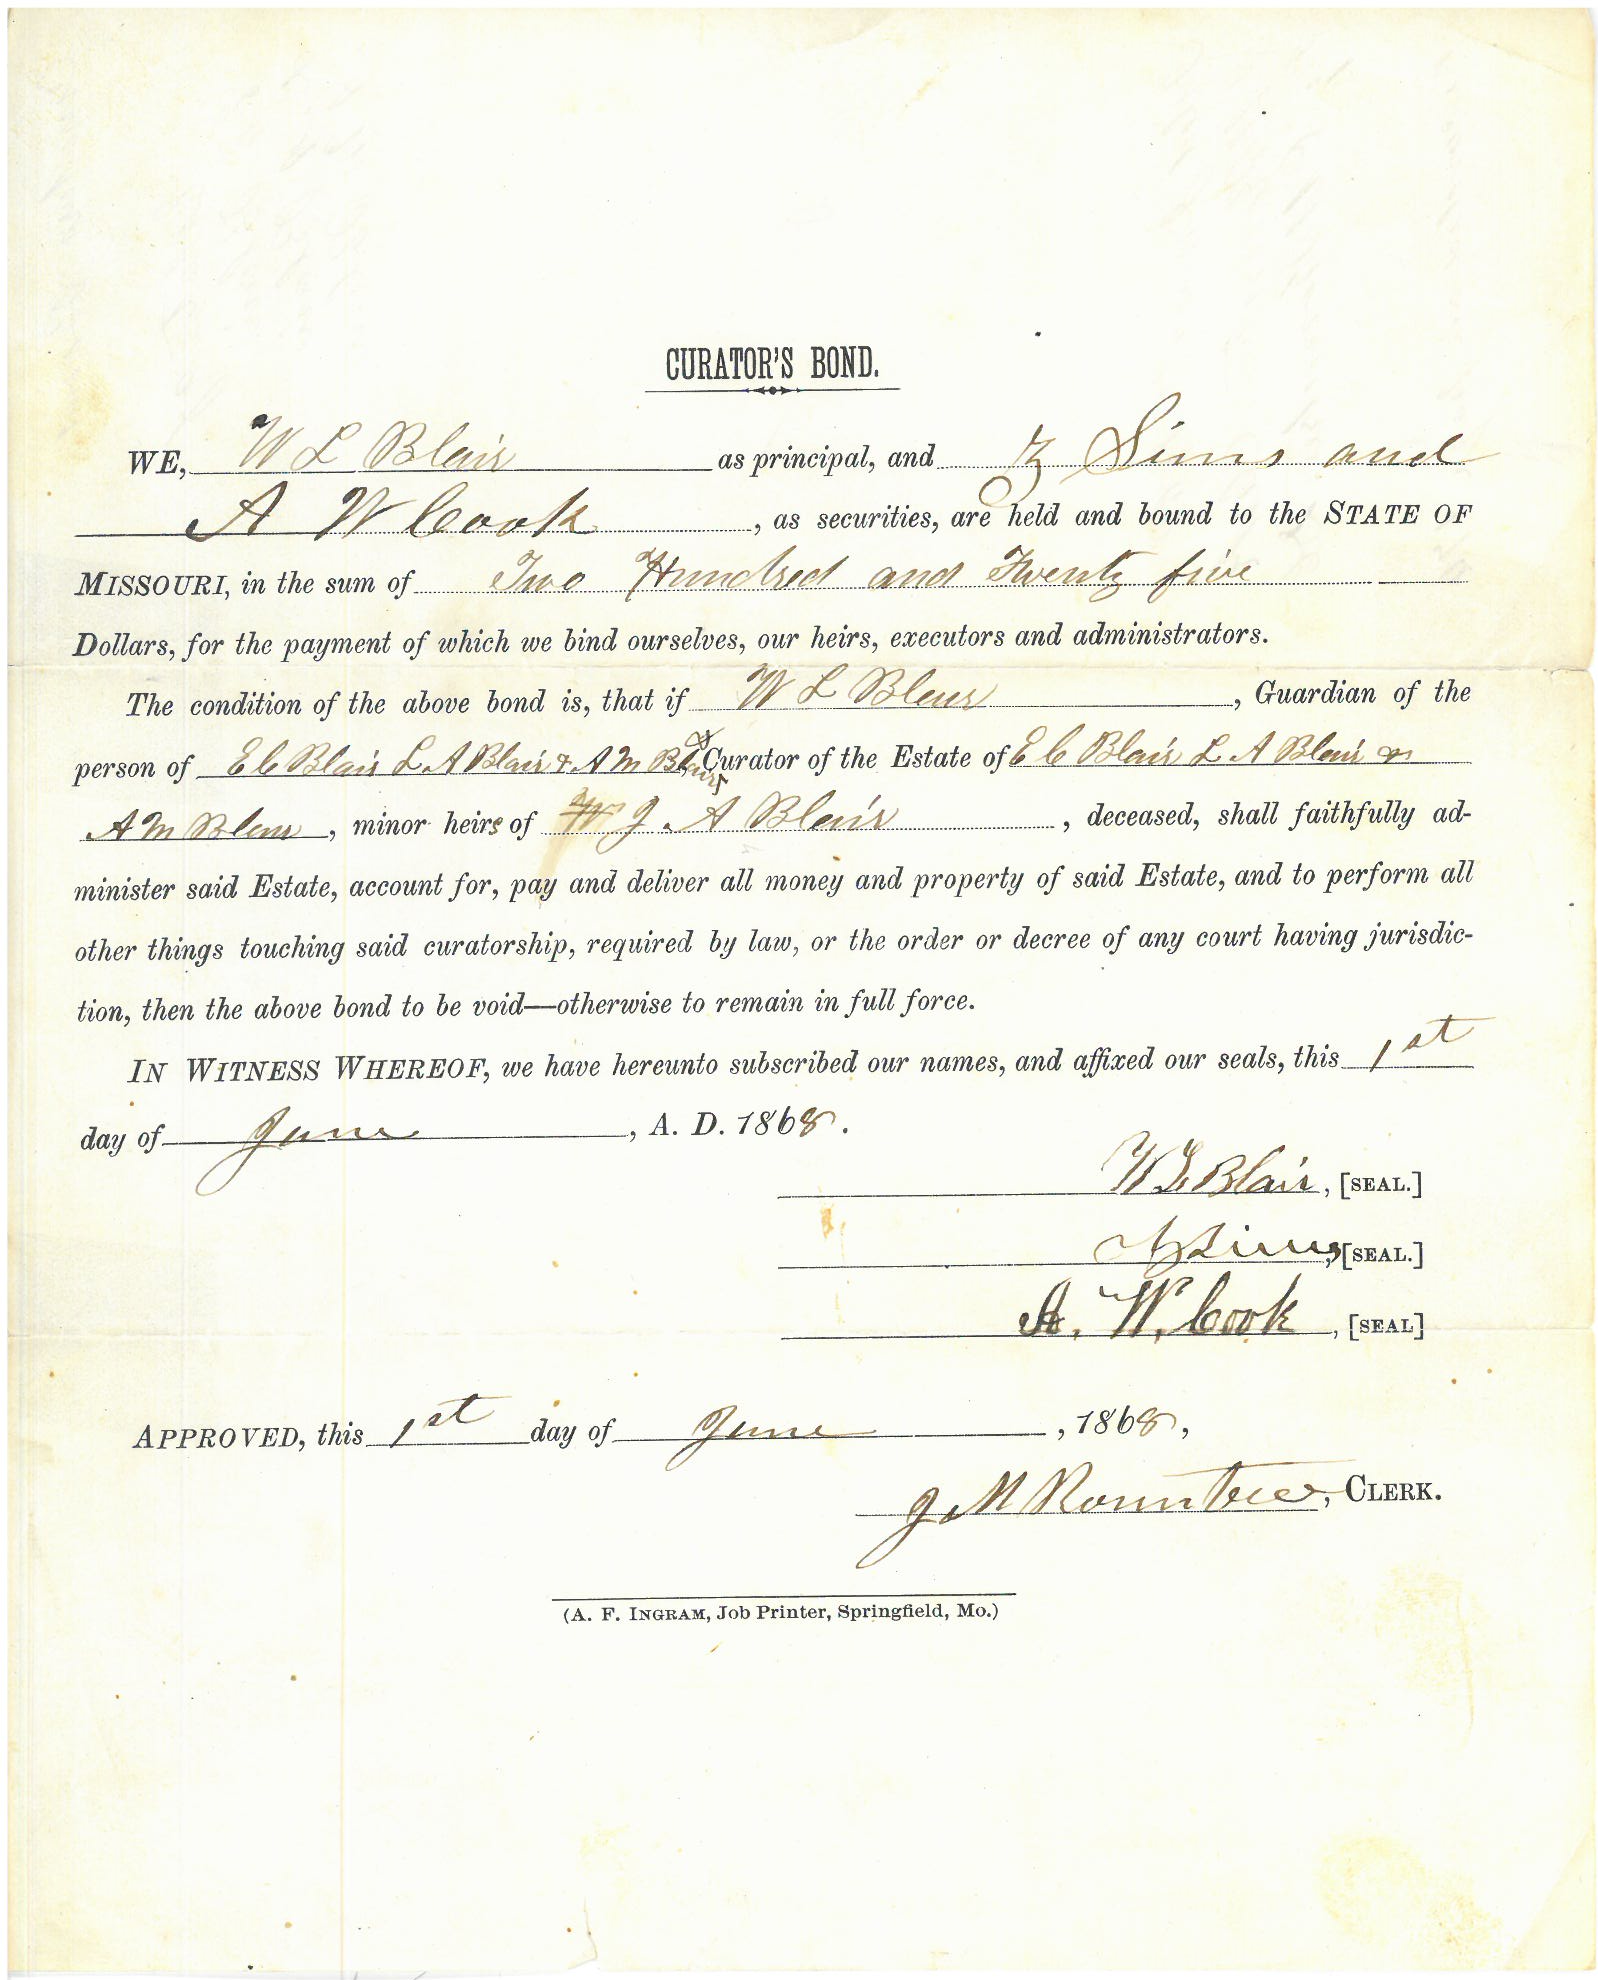 CURATOR'S BOND.
WE, W L Blair as principal, and Z Sims and
A W Cook, as securities, are held and bound to the STATE OF
MISSOURI, in the sum of Two Hundred and Twenty five
Dollars, for the payment of which we bind ourselves, our heirs, executors and administrators.
The condition of the above bond is, that if W L Blair, Guardian of the
person of E C Blair L A Blair & A M Blair & Curator of the Estate of E C Blair L A Blair &
A M Blair, minor heirs of J A Blair, deceased, shall faithfully ad-
minister said Estate, account for, pay and deliver all money and property of said Estate, and to perform all
other things touching said curatorship, required by law, or the order or decree of any court having jurisdic-
tion, then the above bond to be void—otherwise to remain in full force.
IN WITNESS WHEREOF, we have hereunto subscribed our names, and affixed our seals, this 1st
day of June, A. D. 1868.
W L Blair, [SEAL.]
Z Sims, [SEAL.]
A. W. Cook, [SEAL]
APPROVED, this 1st day of June, 1868,
J M Rountree, CLERK.
(A. F. INGRAM, Job Printer, Springfield, Mo.)